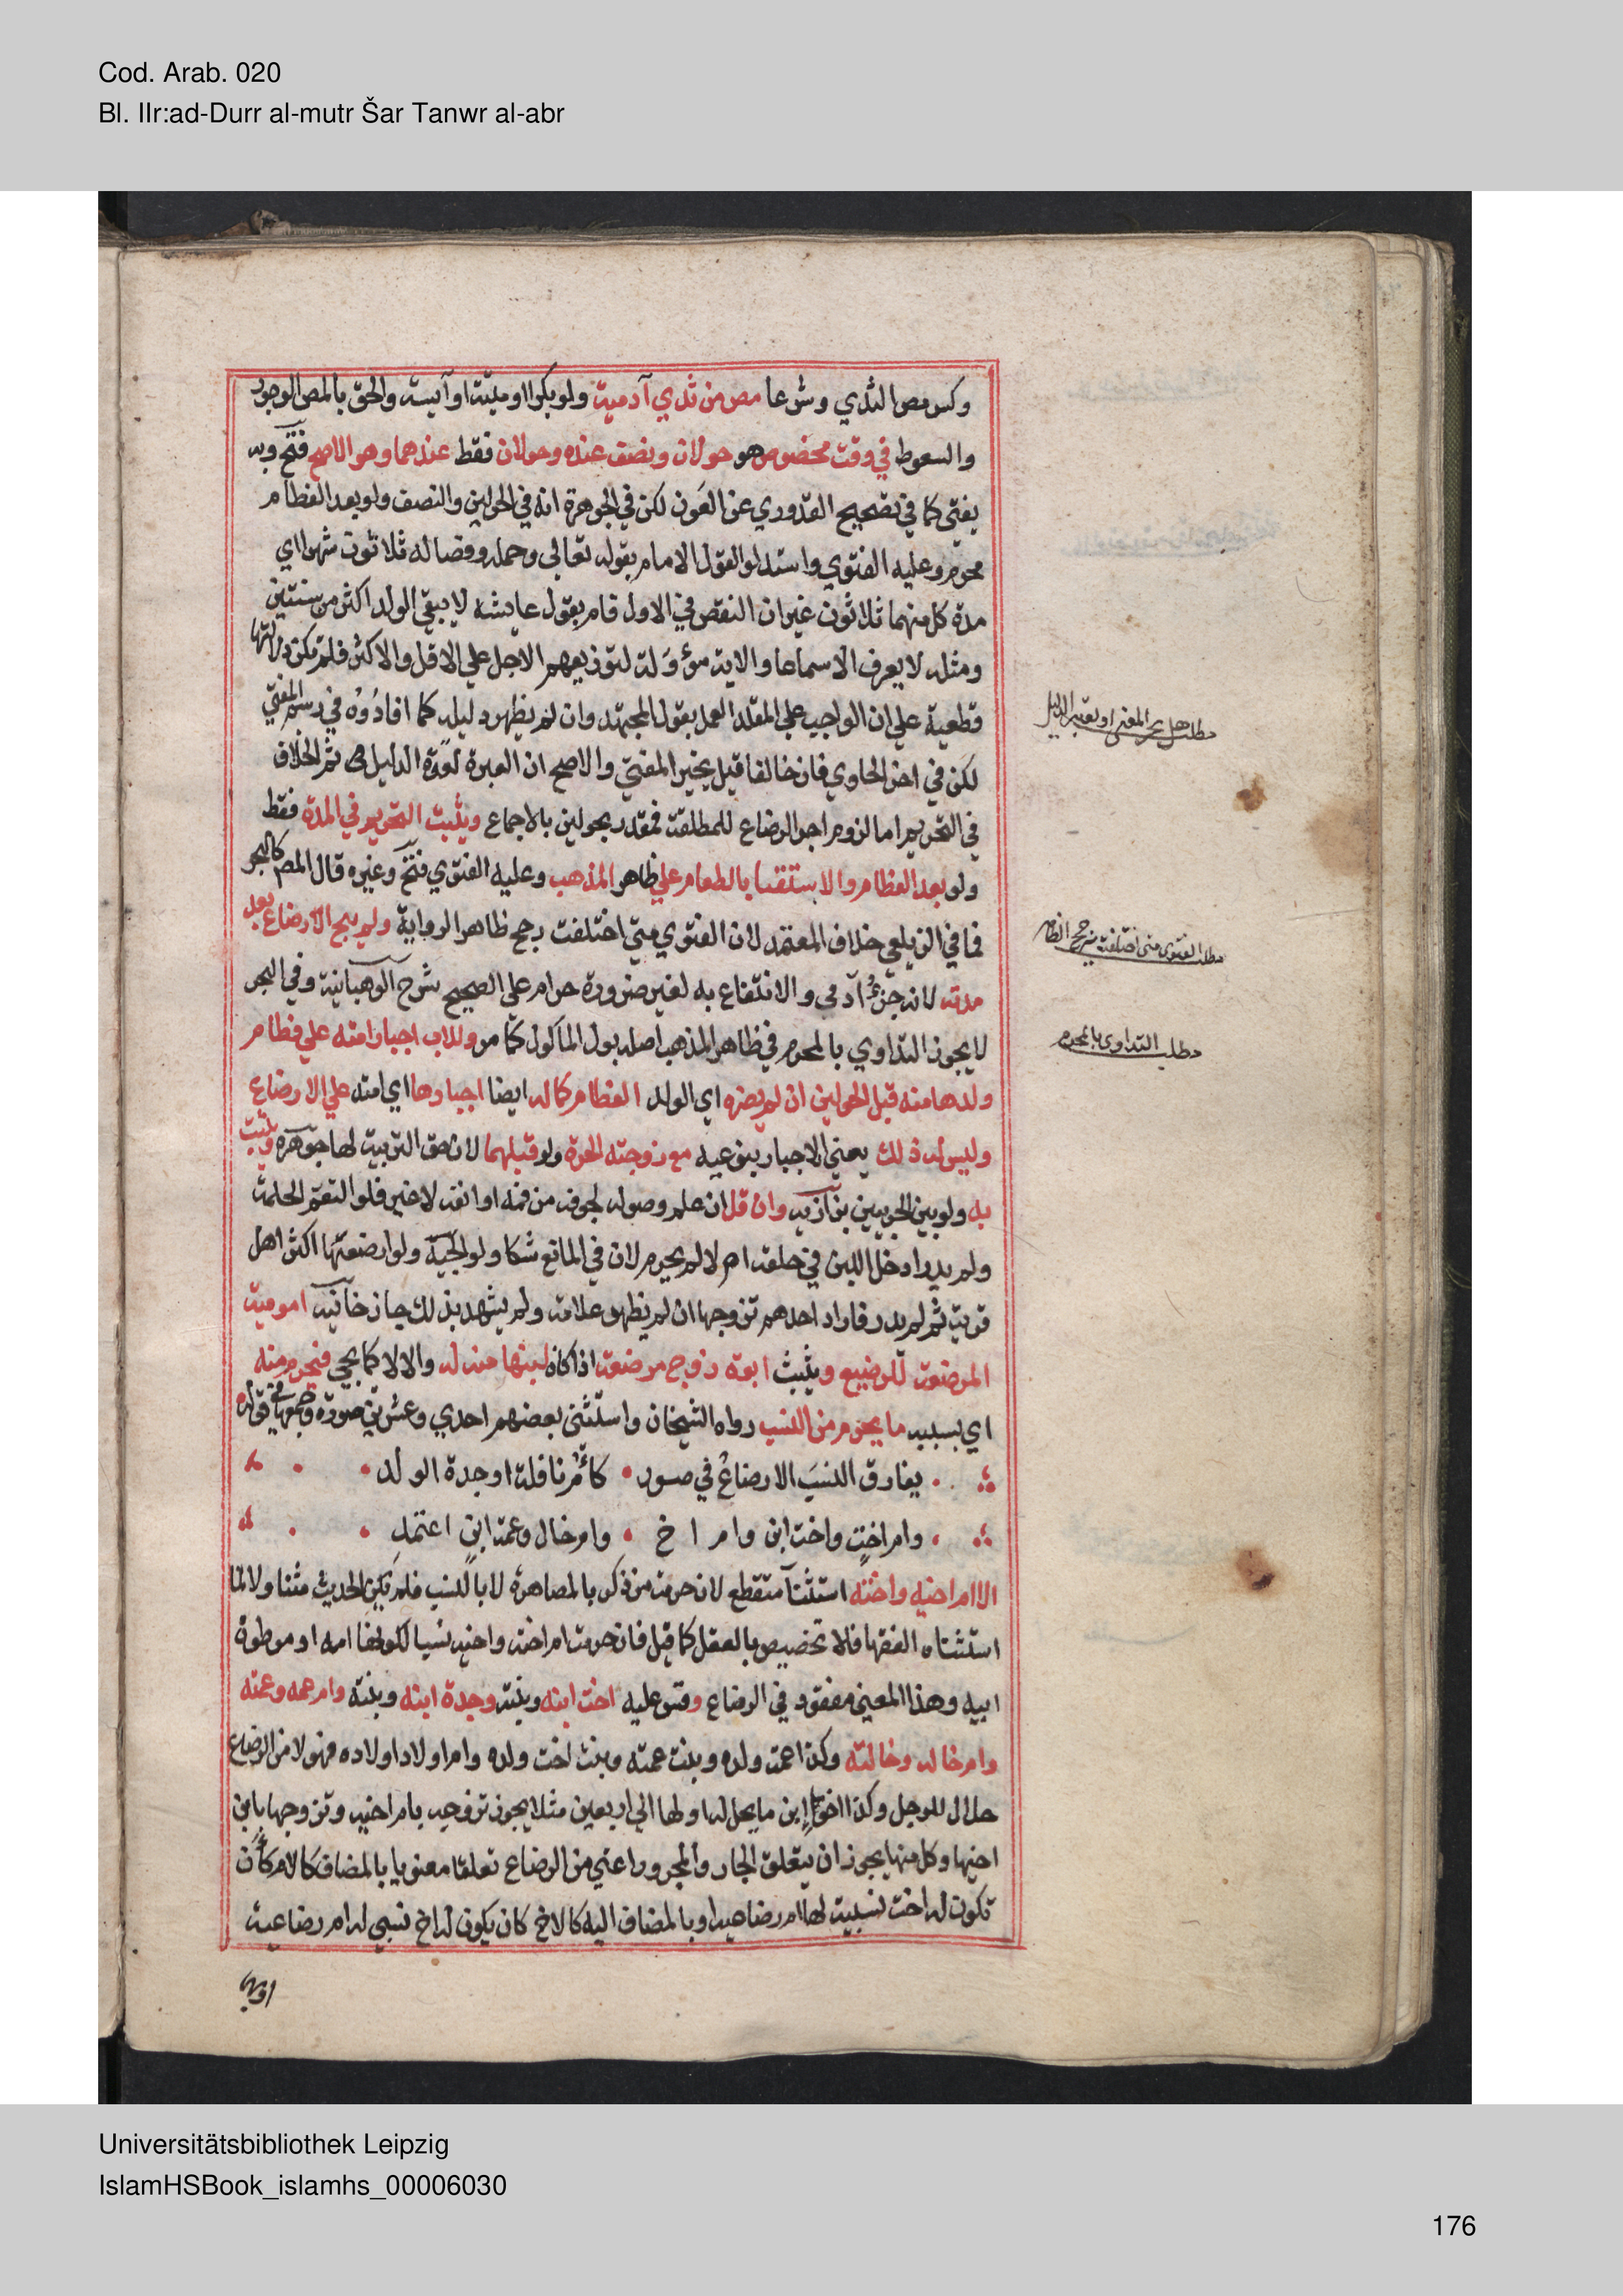 Cod. Arab. 020
Bl. IIr:ad-Durr al-mutr Šar Tanwr al-abr
وكسر مص الثدي وشرعا مص من ثدي آدمية ولو بكرا او ميتة او آيسة والحق بالمص الوجور
والسعوط في وقت مخصوص هو حولان ونصف عنده وحولان فقط عندهما وهو الاصح فتح وبه
يفتى كما في تصحيح القدوري عن العون لكن في الجوهرة انه في الحولين والنصف ولو بعد الفطام
محرم وعليه الفتوي واستدلوا لقول الامام بقوله تعالى وحمله وفصاله ثلاثون شهرا اي
مدة كل منهما ثلاثون غير ان النقص في الاول قام بقول عايشة لا يبقى الولد اكثر من سنتين
ومثله لا يعرف الا سماعا والاية مؤولة لتوزيعهم الاجل علي الاقل والاكثر فلم تكن دلالتها
قطعية علي ان الواجب علي المقلد العمل بقول المجتهد وان لم يظهر دليله كما افادوه في رسم المفتي
لكن في اخر الحاوي فان خالفا قيل يخير المفتي والاصح ان العبرة لقوة الدليل ثم الخلاف
في التحريم اما لزوم اجر الرضاع للمطلقة فمقدر بحولين بالاجماع ويثبت التحريم في المدة فقط
ولو بعد الفطام والاستغنا بالطعام علي ظاهر المذهب وعليه الفتوي فتح وغيره قال المص كالبحر
فما في الزيلعي خلاف المعتمد لان الفتوي متى اختلفت رجح ظاهر الرواية ولم يبح الارضاع بعد
مدته لانه جزؤ آدمي والانتفاع به لغير ضرورة حرام علي الصحيح شرح الوهبانية وفي البحر
لا يجوز التداوي بالمحرم في ظاهر المذهب اصله بول الماكول كما مر وللاب اجبار امته علي فطام
ولدها منه قبل الحولين ان لم يضره اي الولد الفطام كما له ايضا اجبارها اي امته علي الارضاع
وليس له ذلك يعني الاجبار بنوعيه مع زوجته الحرة ولو قبلهما لان حق التربية لها جوهرة ويثبت
به ولو بين الحربيين بزازية وان قل ان علم وصوله لجوفه من فمه او انفه لا غير فلو التقم الحلمة
ولم يدر ادخل اللبن في حلقه ام لا لم يحرم لان في المانع شكا ولوالجية ولو ارضعتها اكثر اهل
قرية ثم لم يدر فاراد احدهم تزوجها ان لم يظهر علامة ولم يشهد بذلك جاز خانية امومية
المرضعة للرضيع ويثبث ابوة زوج مرضعة اذا كان لبنها منه له والا لا كما يجي فيحرم منه
اي بسببه ما يحرم من النسب رواه الشيخان واستثنى بعضهم احدي وعشرين صورة وجمعها في قوله
يفارق النسب الارضاع في صور • كام نافلة او جدة الولد
وام اخت واخت ابن وام اخ • وام خال وعمة ابن اعتمد
الا ام اخيه واخته استثنآ منقطع لان حرمة من ذكر بالمصاهرة لا بالنسب فلم تكن الحديث متناولا لما
استثناه الفقها فلا تخصيص بالعقل كما قيل فان حرمة ام اخته واخيه نسبا لكونها امه او موطوة
ابيه وهذا المعني مفقود في الرضاع وقس عليه اخت ابنه وبنته وجدة ابنه وبنته وام عمه وعمته
وام خاله وخالته وكذا عمة ولده وبنت عمته وبنت اخت ولده وام اولاد اولاده فهولا من الرضاع
حلال للرجل وكذا اخو ابن ما يحل له او لها الي اربعين مثلا يجوز تزوجه بام اخيه وتزوجها بابن
اخيها وكل منها يجوز ان يتعلق الجار والمجرور اعني من الرضاع تعلقا معنويا بالمضاف كالام كان
تكون له اخت نسبية لها ام رضاعية او بالمضاف اليه كالاخ كان يكون له اخ نسبي له ام رضاعية
مطلب هل يخير المفتي او يعتبر الدليل
مطلب الفتوى متى اختلفت يترجح الظاهر
مطلب التداوى بالمحرم
اوبهما
Universitätsbibliothek Leipzig
IslamHSBook_islamhs_00006030
176